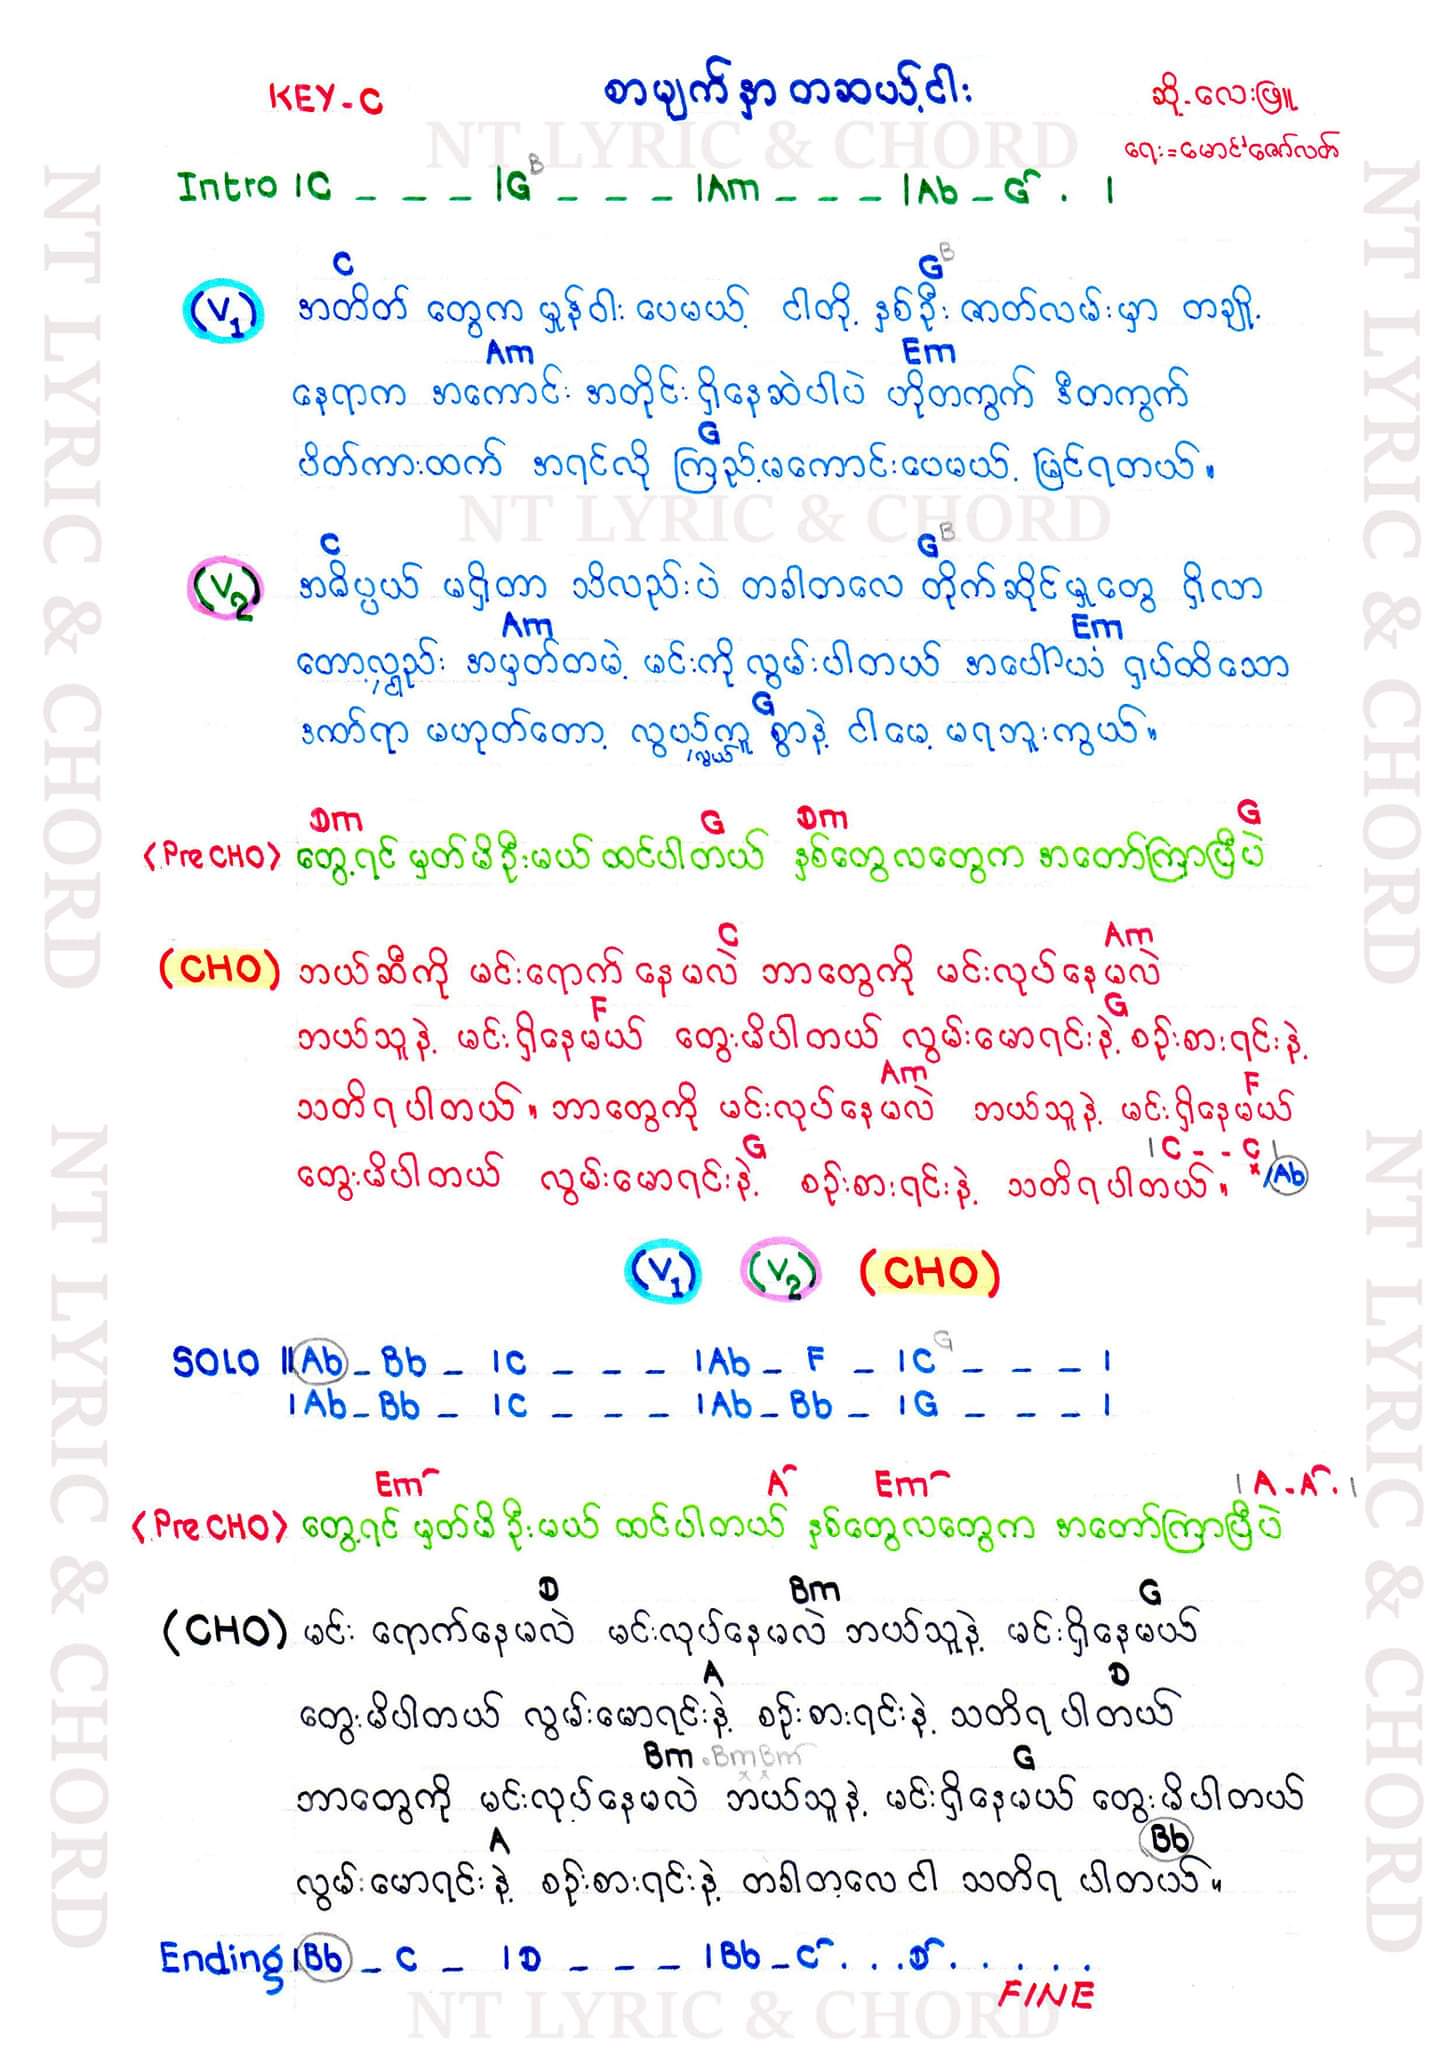 KEY-C စာမျက်နှာ တဆယ့်ငါး ဆို-လေးဖြူ
NT LYRIC & CHORD
ရေး=မောင်မောင်ဇော်လတ်
Intro |C _ _ _ |G B _ _ _ |Am _ _ _ |Ab _ G . |
C G B
(V1) အတိတ် တွေက မှုန်ဝါး ပေမယ့် ငါတို့ နှစ်ဦး ဇာတ်လမ်းမှာ တချို့
Am Em
နေရာက အကောင်း အတိုင်း ရှိနေဆဲပါပဲ ဟိုတကွက် ဒီတကွက်
G
ပိတ်ကားထက် အရင်လို ကြည့်မကောင်းပေမယ့် မြင်ရတယ်။
NT LYRIC & CHORD
C G B
(V2) အဓိပ္ပယ် မရှိတာ သိလည်းပဲ တခါတလေ တိုက်ဆိုင်မှုတွေ ရှိလာ
Am Em
တော့လည်း အမှတ်တမဲ့ မင်းကို လွမ်းပါတယ် အပေါ်ယံ ရှပ်ထိသော
G
ဒဏ်ရာ မဟုတ်တော့ လွယ်ကူ စွာနဲ့ ငါမေ့ မရဘူးကွယ်။
Dm G Dm G
<Pre CHO> တွေ့ရင် မှတ်မိဦးမယ် ထင်ပါတယ် နှစ်တွေလတွေက အတော်ကြာပြီပဲ
C Am
(CHO) ဘယ်ဆီကို မင်းရောက် နေမလဲ ဘာတွေကို မင်းလုပ်နေမလဲ
F G
ဘယ်သူနဲ့ မင်းရှိနေမယ် တွေးမိပါတယ် လွမ်းမောရင်းနဲ့ စဉ်းစားရင်းနဲ့
Am F
သတိရပါတယ်။ ဘာတွေကို မင်းလုပ်နေမလဲ ဘယ်သူနဲ့ မင်းရှိနေမယ်
G |C - - C | /Ab
တွေးမိပါတယ် လွမ်းမောရင်းနဲ့ စဉ်းစားရင်းနဲ့ သတိရပါတယ်။
(V1) (V2) (CHO)
SOLO ||Ab _ Bb _ |C _ _ _ |Ab _ F _ |C G _ _ _ |
|Ab _ Bb _ |C _ _ _ |Ab _ Bb _ |G _ _ _ |
Em A Em |A . A . |
<Pre CHO> တွေ့ရင် မှတ်မိဦးမယ် ထင်ပါတယ် နှစ်တွေလတွေက အတော်ကြာပြီပဲ
D Bm G
(CHO) မင်း ရောက်နေမလဲ မင်းလုပ်နေမလဲ ဘယ်သူနဲ့ မင်းရှိနေမယ်
A D
တွေးမိပါတယ် လွမ်းမောရင်းနဲ့ စဉ်းစားရင်းနဲ့ သတိရ ပါတယ်
Bm . Bm Bm G
ဘာတွေကို မင်းလုပ်နေမလဲ ဘယ်သူနဲ့ မင်းရှိနေမယ် တွေးမိပါတယ်
A Bb
လွမ်းမောရင်းနဲ့ စဉ်းစားရင်းနဲ့ တခါတလေ ငါ သတိရ ပါတယ်။
Ending |Bb _ C _ |D _ _ _ |Bb _ C . . . D . . . . .
FINE
NT LYRIC & CHORD
NT LYRIC & CHORD
NT LYRIC & CHORD
NT LYRIC & CHORD
NT LYRIC & CHORD